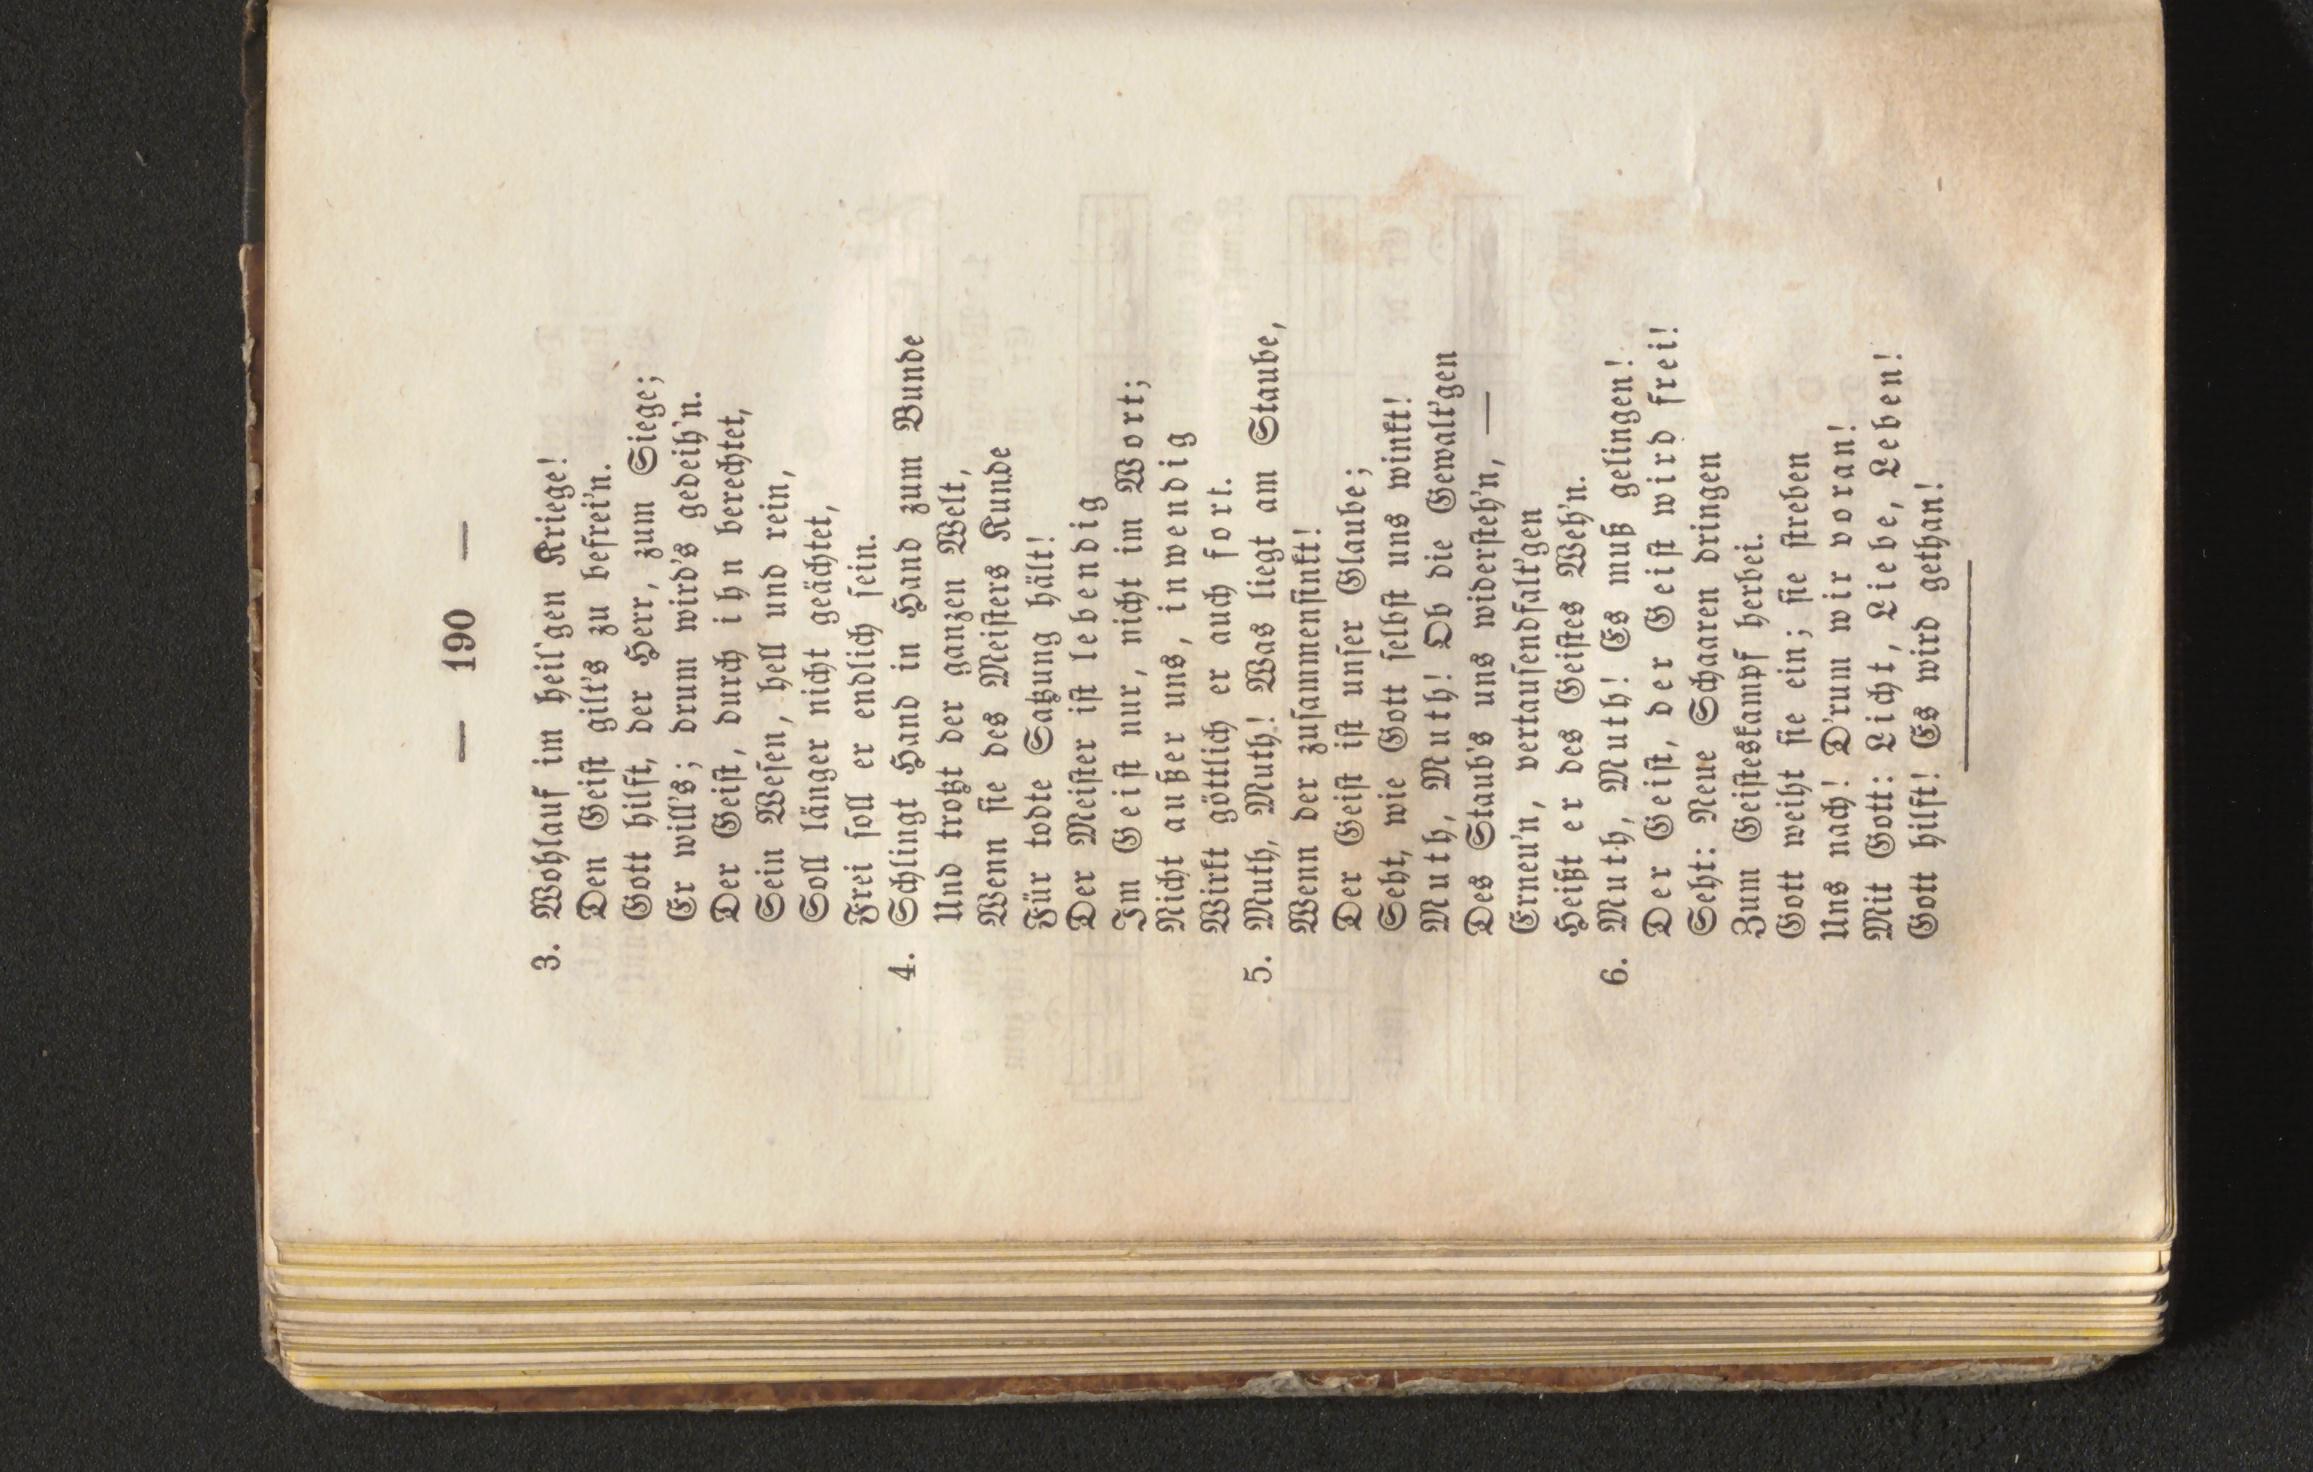 — 190 —
3. Wohlauf im heil'gen Kriege!
Den Geist gilt's zu befrei'n.
Gott hilft, der Herr, zum Siege;
Er will's; drum wird's gedeih'n.
Der Geist, durch ihn berechtet,
Sein Wesen, hell und rein,
Soll länger nicht geächtet,
Frei soll er endlich sein.
4. Schlingt Hand in Hand zum Bunde
Und trotzt der ganzen Welt,
Wenn sie des Meisters Kunde
Für todte Satzung hält!
Der Meister ist lebendig
Im Geist nur, nicht im Wort;
Nicht außer uns, inwendig
Wirkt göttlich er auch fort.
5. Muth, Muth! Was liegt am Staube,
Wenn der zusammensinkt!
Der Geist ist unser Glaube;
Seht, wie Gott selbst uns winkt!
Muth, Muth! Ob die Gewalt'gen
Des Staub's uns widersteh'n, —
Erneu'n, vertausendfalt'gen
Heißt er des Geistes Weh'n.
6. Muth, Muth! Es muß gelingen!
Der Geist, der Geist wird frei!
Seht: Neue Schaaren dringen
Zum Geisteskampf herbei.
Gott weiht sie ein; sie streben
Uns nach! D'rum wir voran!
Mit Gott: Licht, Liebe, Leben!
Gott hilft! Es wird gethan!